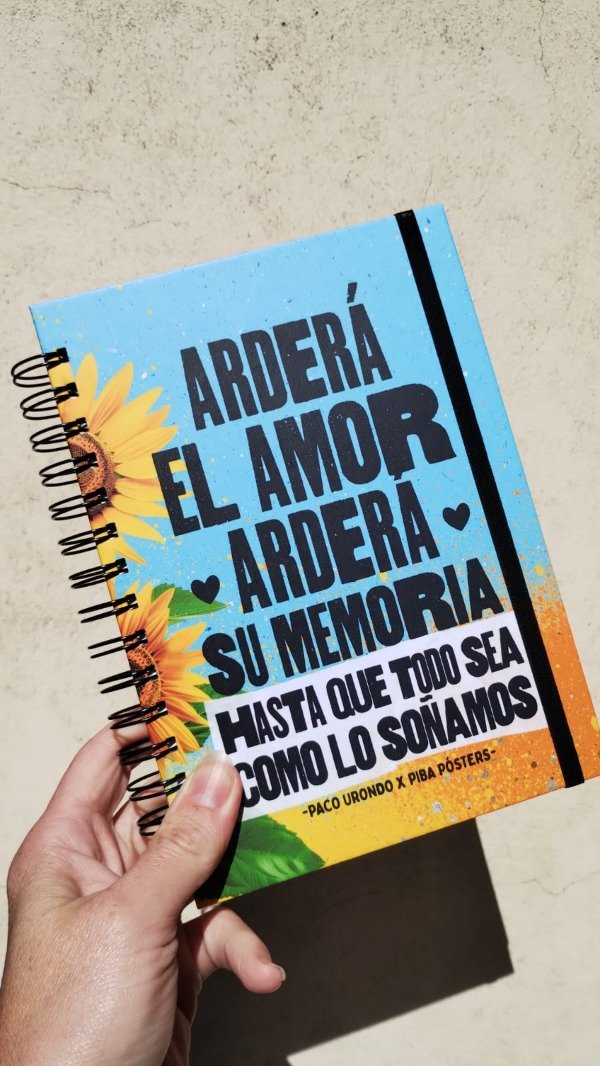 ARDERÁ
EL AMOR
ARDERÁ
SU MEMORIA
HASTA QUE TODO SEA
COMO LO SOÑAMOS
-PACO URONDO X PIBA PÓSTERS-